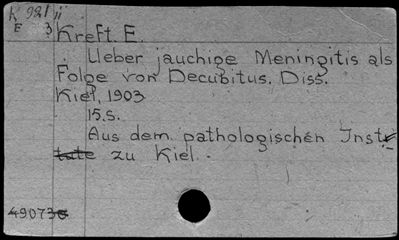 K 921 ii
E 3
Kreft. E.
Ueber jauchige Meningitis als
Folge von Decubitus. Diss.
Kiel, 1903
15.S.
Aus dem pathologischen Insti-
zu Kiel.